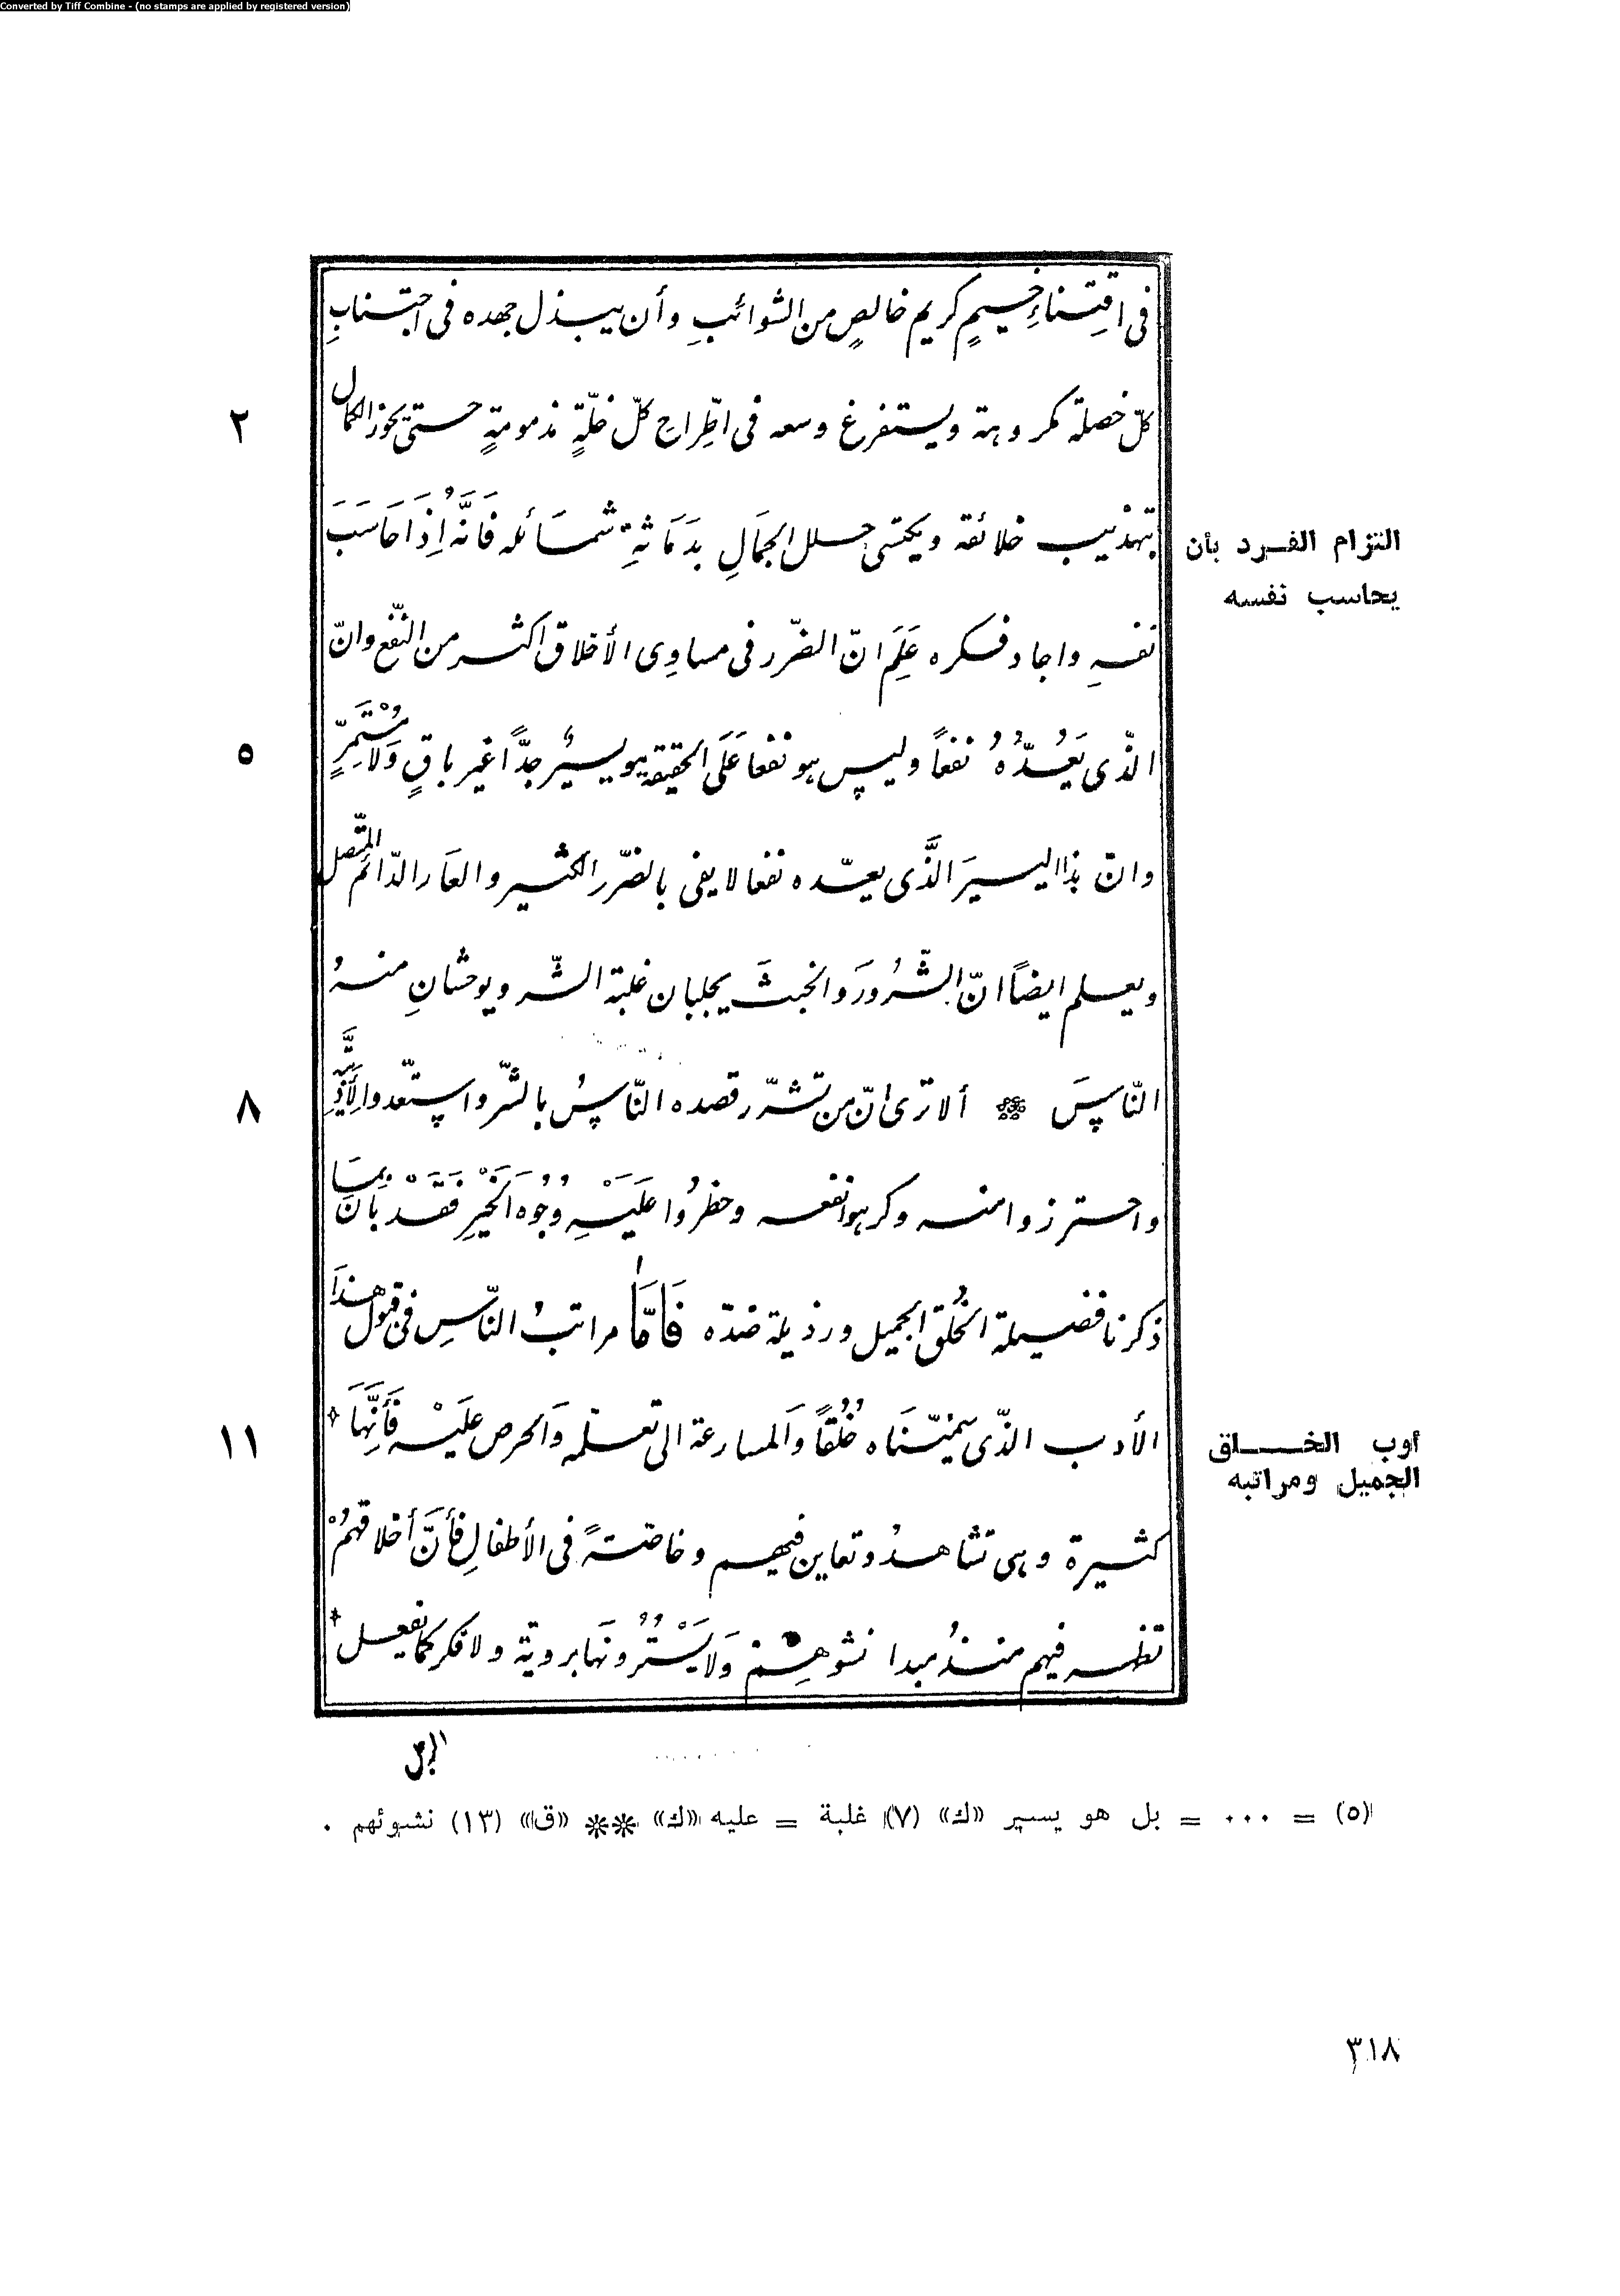 Converted by Tiff Combine - (no stamps are applied by registered version)
فى اقتِناءِ خيمٍ كريم خالصٍ من الشوائبِ وأن يبذل جهده فى اجتنابِ
٢
كلّ خصلة مكروهة ويستفرغ وسعه فى اطِّراحِ كلّ خلّةٍ مذمومةٍ حتى يحوز الكمال
بتهذيب خلائقه ويكتسى حلل الجمَالِ بدَمَاثةِ شمَائله فَانَّهُ اِذَا حَاسَبَ
التزام الفرد بأن
يحاسب نفسه
نفسهِ واجاد فكره عَلِمَ انّ الضّرر فى مساوِى الأخلاق اكثر من النّفع وانّ
٥
الذّى يَعُدُّهُ نفعاً وليس هو نفعا عَلَى الحقيقة هو يسيرٌ جدّاً غير باقٍ وَلَا مُسْتَمِرٍّ
وانّ هذا اليسيرَ الذَّى يعدّه نفعا لا يفى بالضّرر الكثير والعَار الدّائم المتّصل
ويعلم ايضاً انّ الشّرُورَ والخبثَ يجلبان غلبة الشّر ويوحشانِ منهُ
٨
النّاسَ ألا ترى انّ من تشرّر قصده النّاسُ بالشّر واستعدّوا لأَذِيَّتِهِ
واحترزوا منه وكرهوا نفعه وحظرُوا عَلَيْهِ وُجُوه اَلخَيْرِ فَقَدْ بَانَ بِمَا
ذكرنا فضيلة الخُلق الجميل ورذيلة ضدّه فَاَمَّا مراتبُ النّاسِ فى قبول هذَا
١١
الأدب الذّى سَمّيْنَاه خُلُقاً وَالمسارعة الى تعلّمه وَالحرص عَليْه فَأَنَّهَا
أوب الخلق
الجميل ومراتبه
كثيرة وهى تشاهدُ وتعاين فيهم وخاصّةً فى الأطفالِ فَأنَّ أخلاقهُمْ
تظهر فيهم منذُ مبدا نشوهِمْ وَلَا يَسْتُرُونهَا بروّية ولا فكر كما يفعل
الرجل
(٥) = ... = بل هو يسير «ك» (٧) غلبة = عليه «ك» ** «ق» (١٣) نشوئهم .
٣١٨